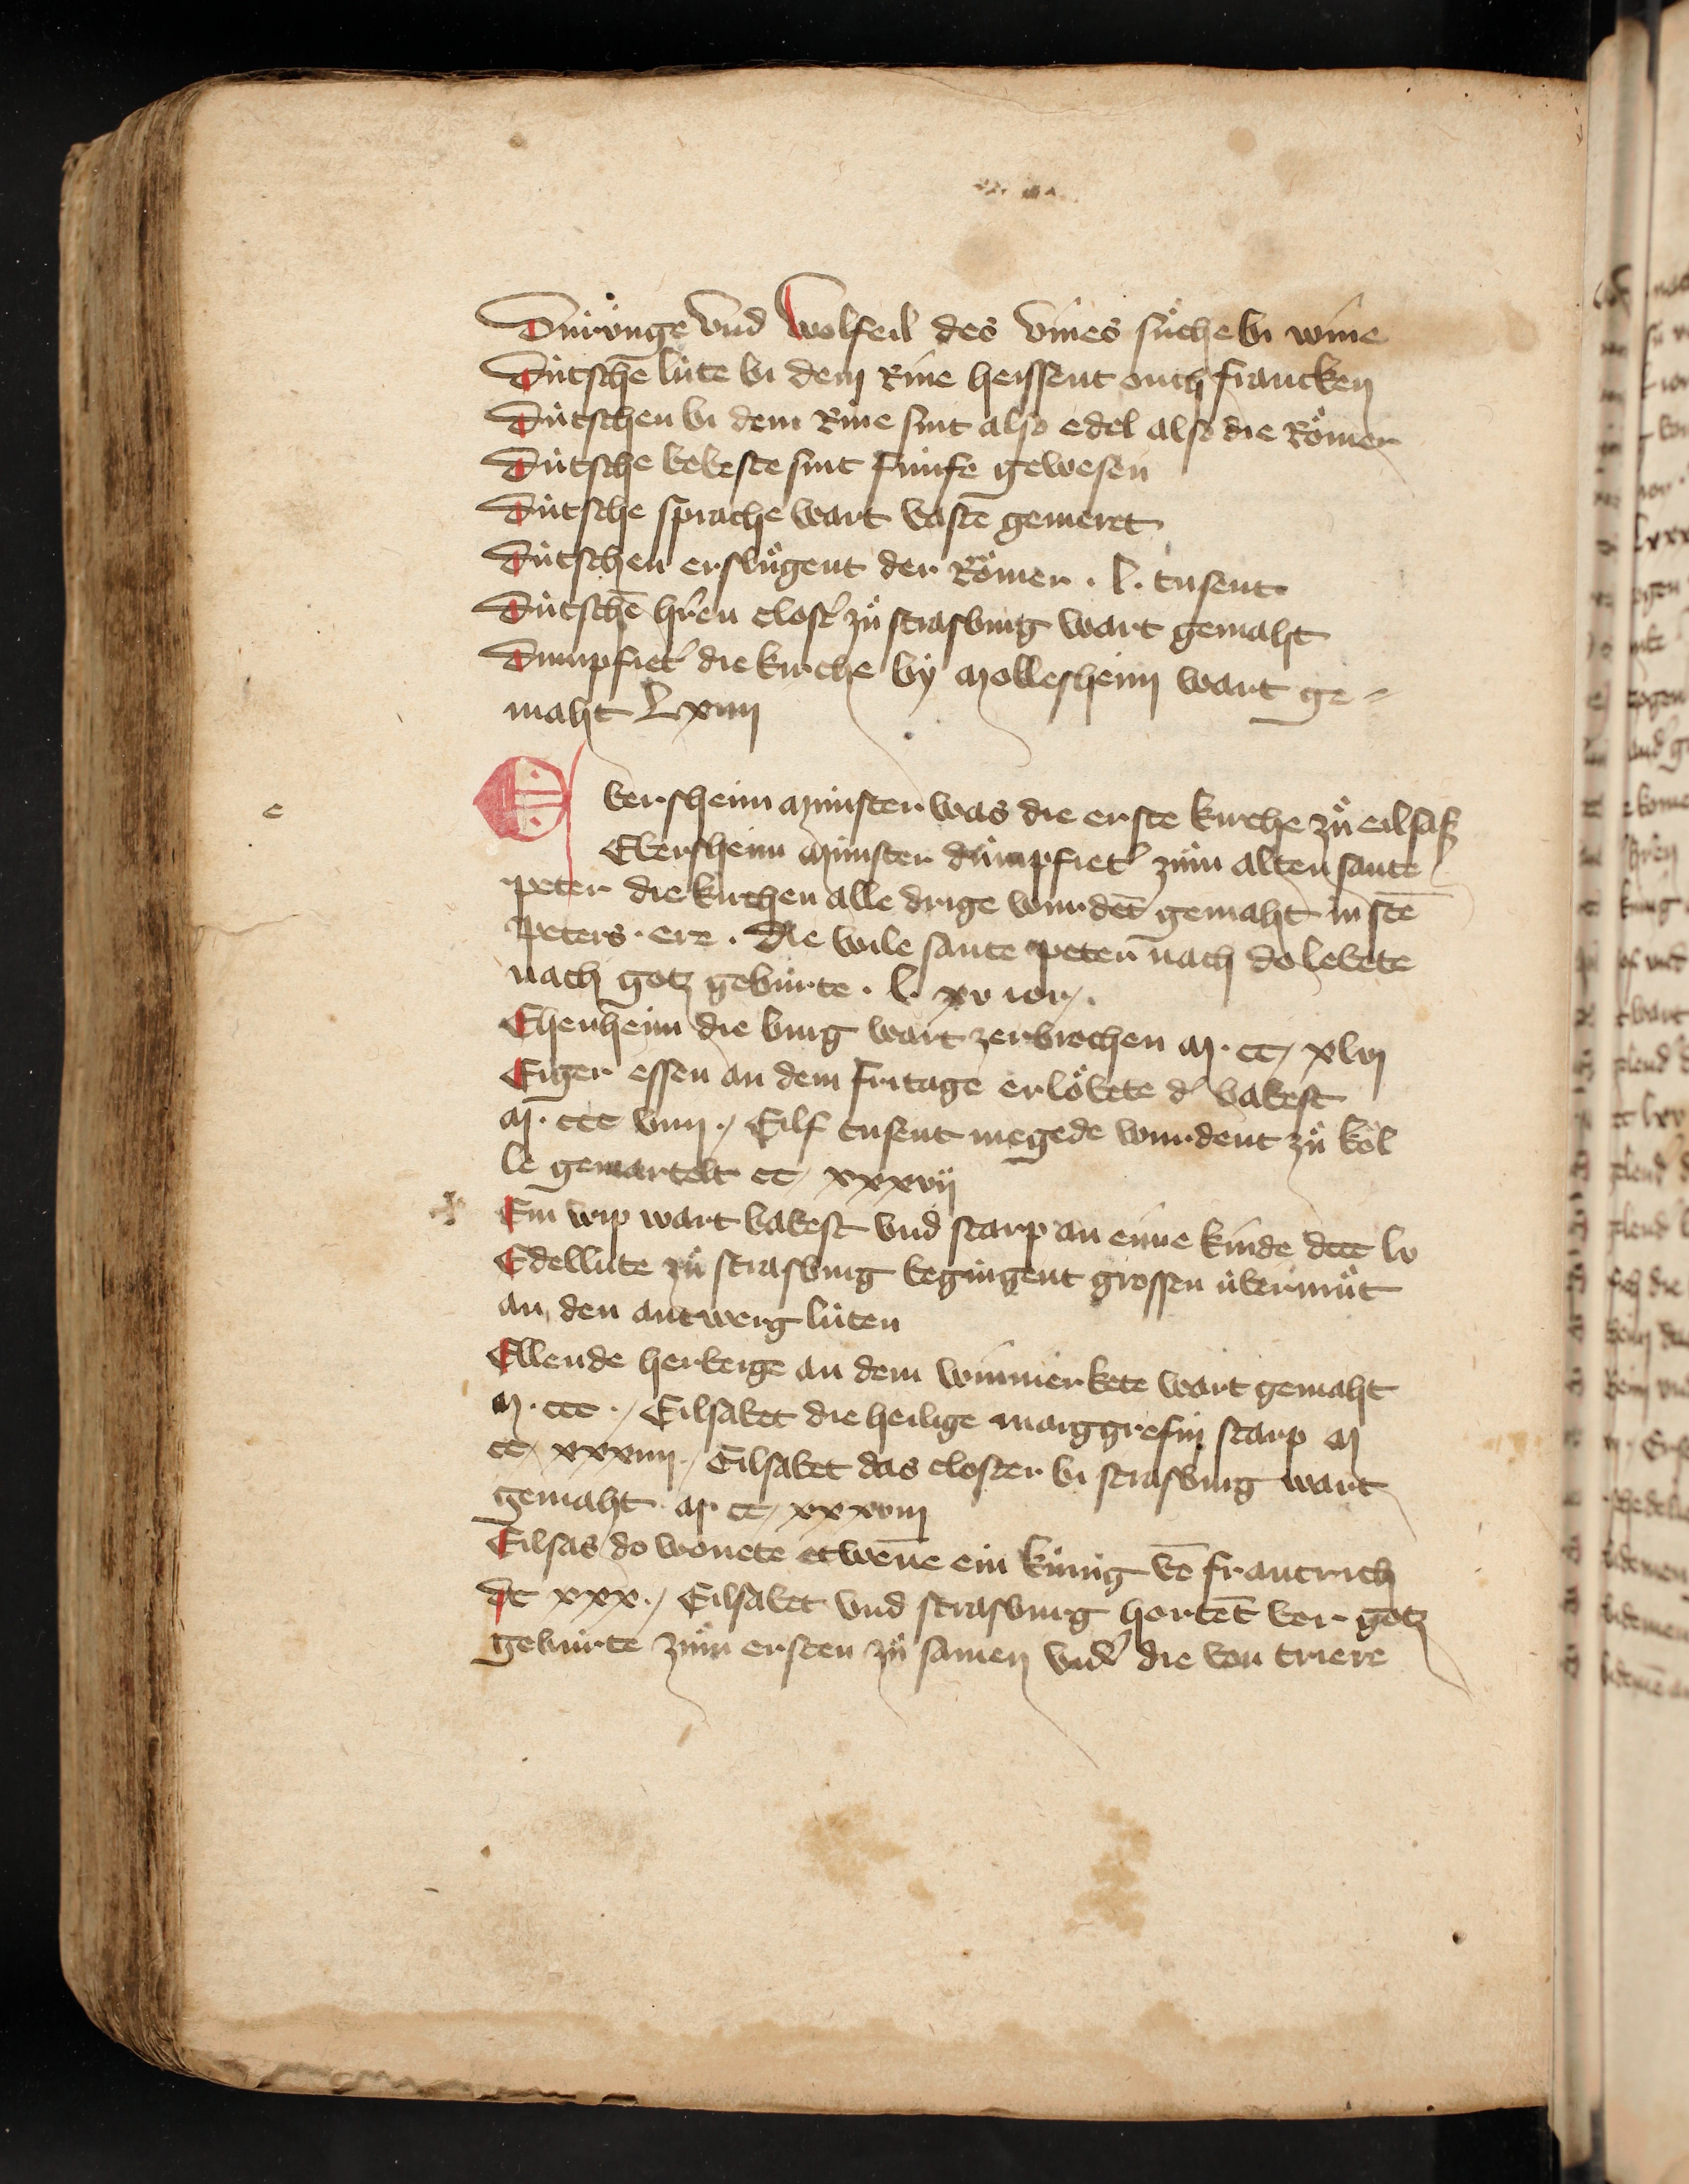 Duͤrunge vnd wolfeil des vines suͦche bi wine
Dútschē lúte bi dem Rine heissent ouch francken
Dútschen bi dem Rine sint also edel also die Roͤmer
Dútsche bebeste sint fúnfe gewesen
Dútsche sprache wart vastē gemeret
Dútschen ersluͦgent der Roͤmer . l . tusent
Dútschē hr̄en clost' zuͦ strasburg wart gemaht
Dumpfiet' die kirche by mollesheim wart ge-
maht Lxiiij
E bersheim múnster was die erste kirche zuͦ eilsaß
Ebersheim múnster dúmpfiet' zuͦm alten sante
peter die kirchen alle drige wurdēt gemaht in stē
Peters ere . Die wile sante peter nach do lebete
nach gotz gebúrte . l . xv ior .
Ehenheim die burg wart zerbrochen M . cc xlvj
Eiger essen an dem fritage erloͤbete d' babest
M . ccc viiij . Eilf tusent megede wurdent zuͦ koͤl
le gemartelt cc xxxvij
Ein wip wart babest vnd starp an eime kinde dccc lv
Edellúte zuͦ strasburg begingent grossen úbermuͦt
an den antwerg lúten
Ellende herberge an dem winmerkete wart gemaht
M . ccc . Eilsabet die heilige marggrefin starp M
cc xxxiiij . Eilsabet das closter bi strasburg wart
gemaht M cc xxxviij
Eilsas do wonete etwēne ein kúnig vō francrich
dc xxx . Eilsabet vnd strasburg hortēt vor gotz
gebúrte zuͦm ersten zuͦ samen vnd' die von triere
e